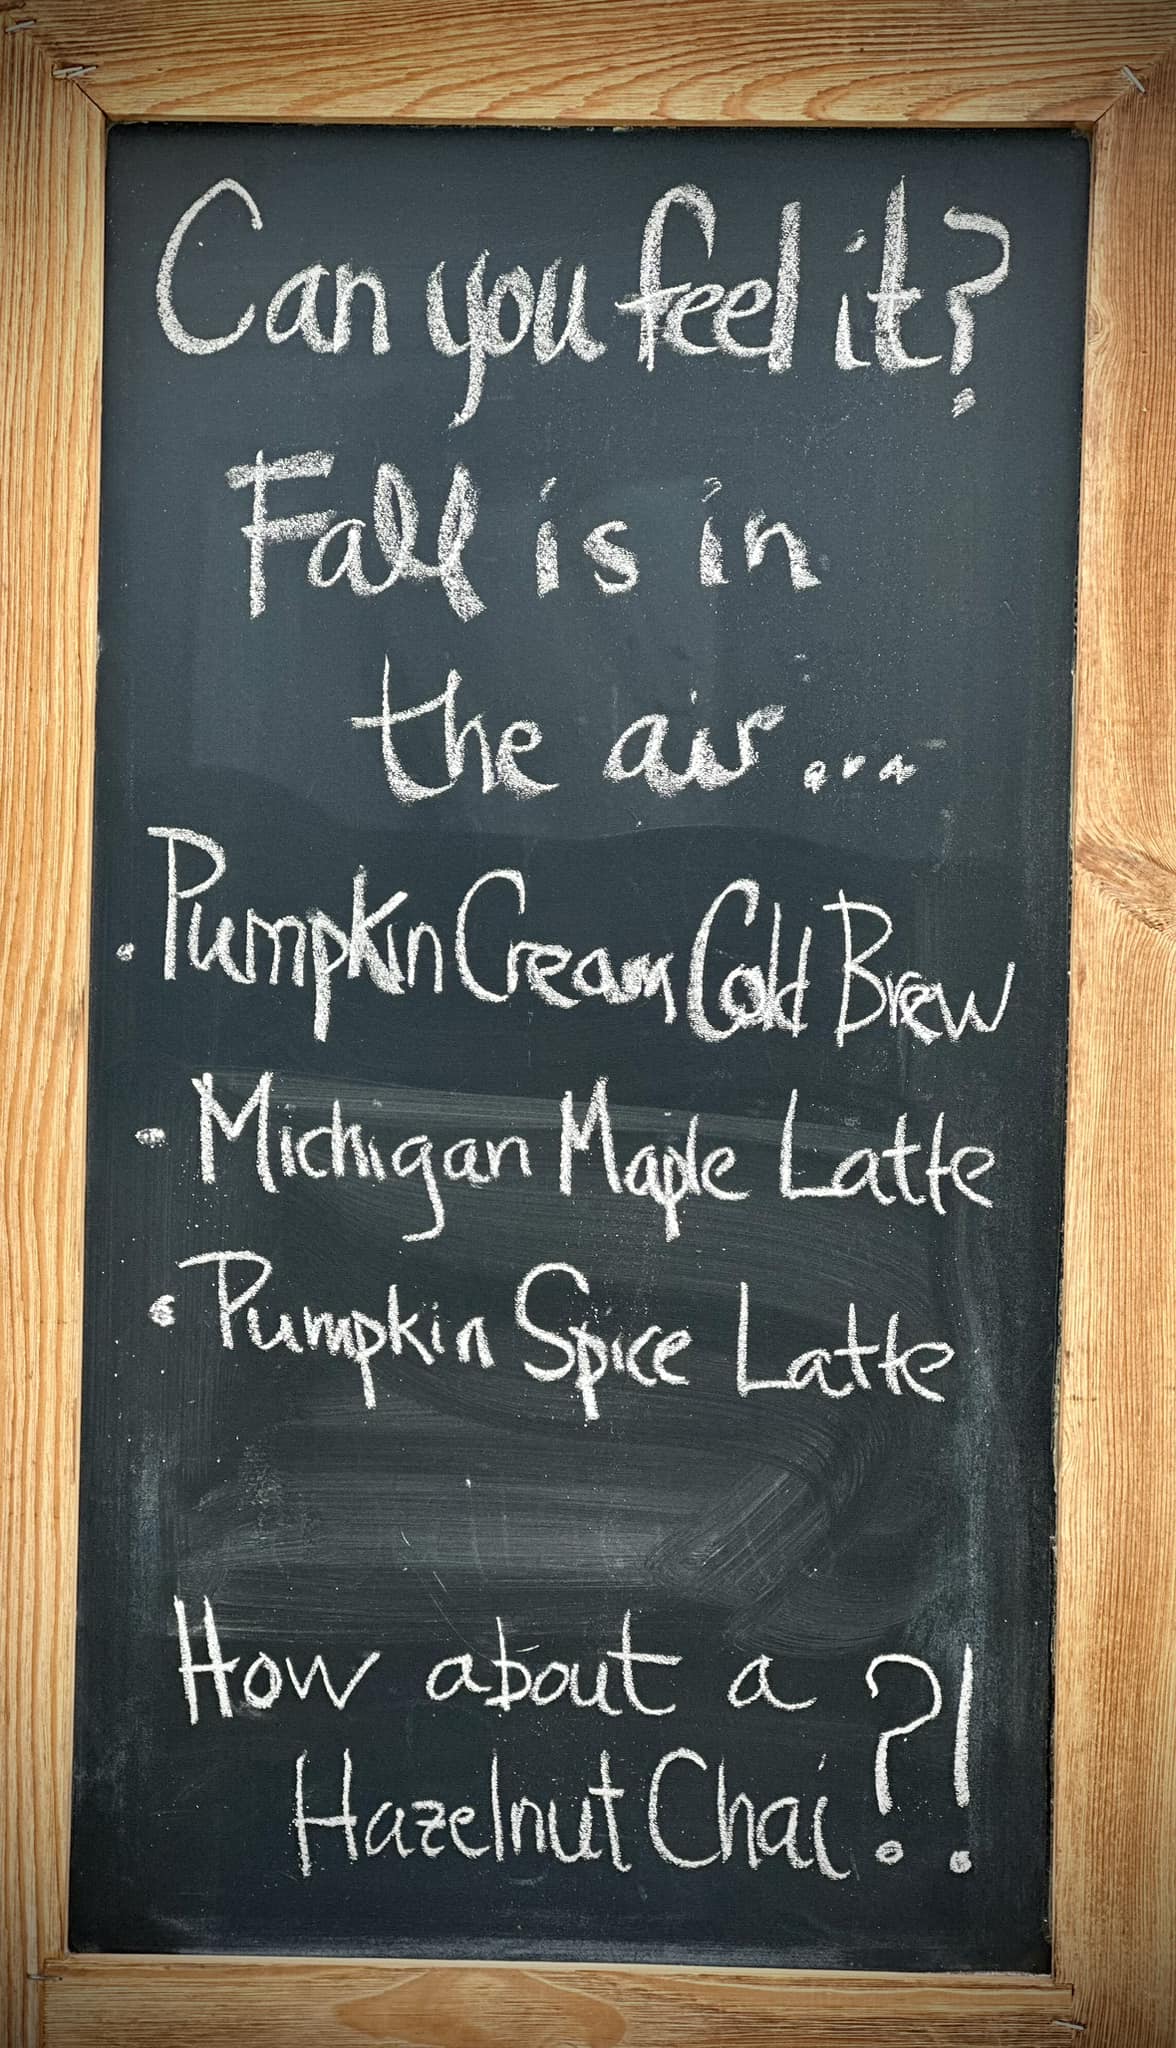 Can you feel it?
Fall is in
the air...
• Pumpkin Cream Cold Brew
- Michigan Maple Latte
• Pumpkin Spice Latte
How about a
Hazelnut Chai?!